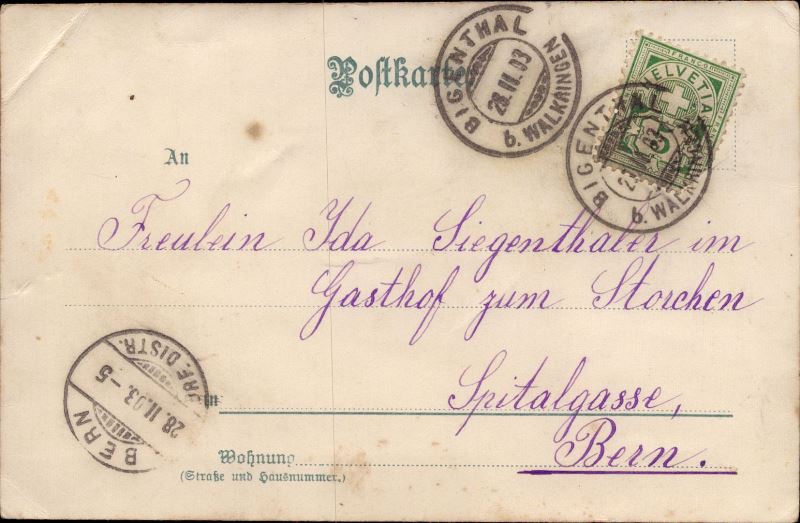 Postkarte
BIGENTHAL
28.II.03
b. WALKRINGEN
FRANCO
HELVETIA
5
BIGENTHAL
b. WALKRINGEN
An
Freulein Ida Siegenthaler im
Gasthof zum Storchen
in Spitalgasse,
Wohnung Bern.
(Straße und Hausnummer.)
BERN
28.II.03.-5
BRF. DISTR.